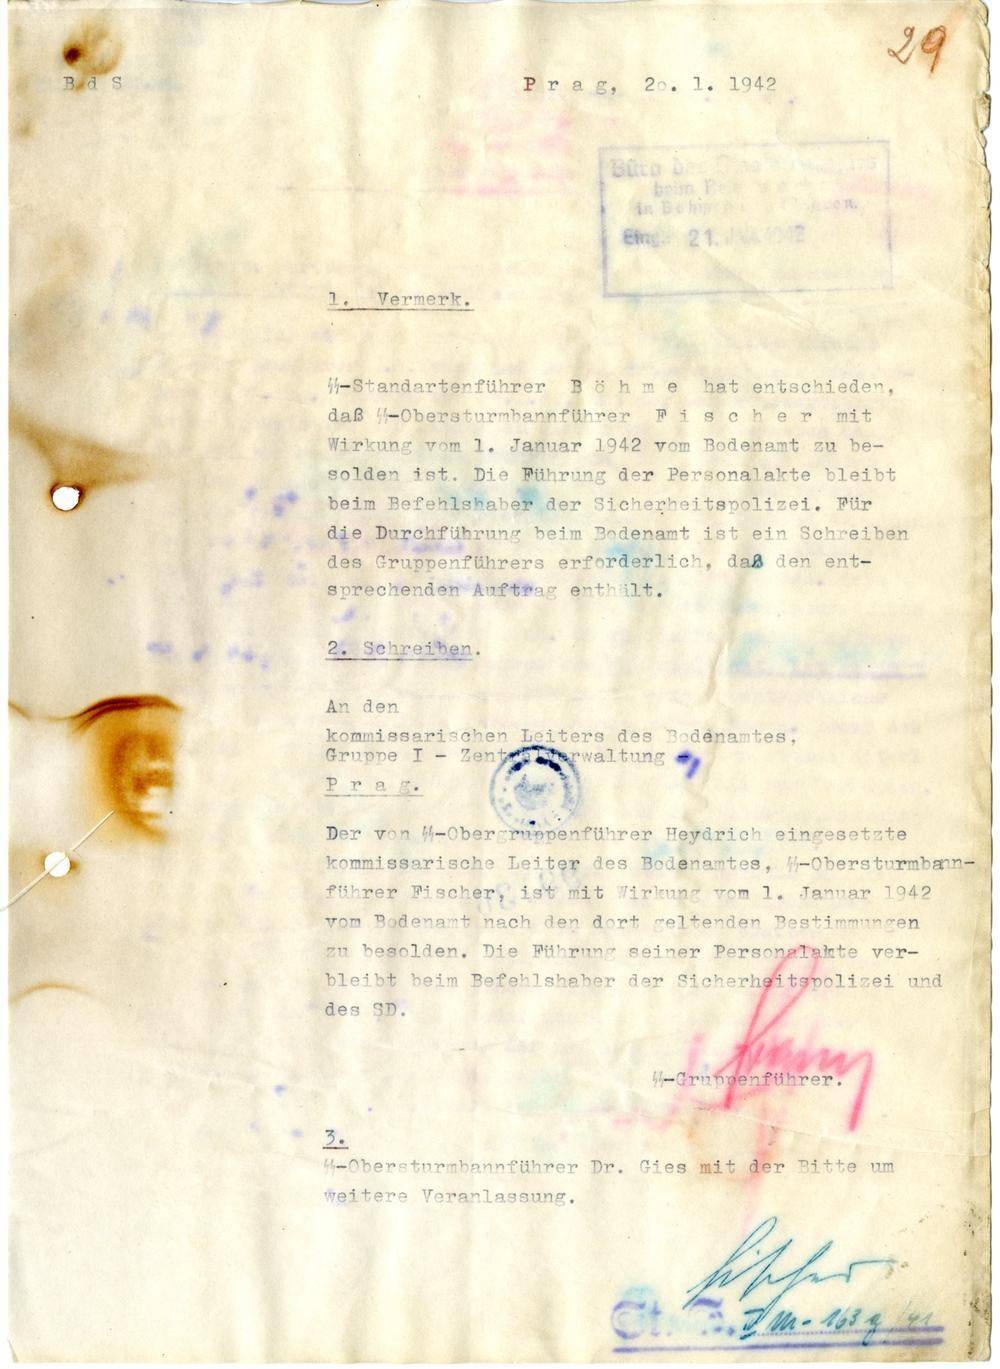 29
B d S
P r a g, 20. 1. 1942
Büro des
beim
in
Eing.: 21. JAN. 1942
1. Vermerk.
SS-Standartenführer B ö h m e hat entschieden,
daß SS-Obersturmbannführer F i s c h e r mit
Wirkung vom 1. Januar 1942 vom Bodenamt zu be-
solden ist. Die Führung der Personalakte bleibt
beim Befehlshaber der Sicherheitspolizei. Für
die Durchführung beim Bodenamt ist ein Schreiben
des Gruppenführers erforderlich, daß den ent-
sprechenden Auftrag enthält.
2. Schreiben.
An den
kommissarischen Leiters des Bodenamtes,
Gruppe I - Zentralverwaltung -
P r a g.
Der von SS-Obergruppenführer Heydrich eingesetzte
kommissarische Leiter des Bodenamtes, SS-Obersturmbann-
führer Fischer, ist mit Wirkung vom 1. Januar 1942
vom Bodenamt nach den dort geltenden Bestimmungen
zu besolden. Die Führung seiner Personalakte ver-
bleibt beim Befehlshaber der Sicherheitspolizei und
des SD.
SS-Gruppenführer.
3.
SS-Obersturmbannführer Dr. Gies mit der Bitte um
weitere Veranlassung.
St. S.